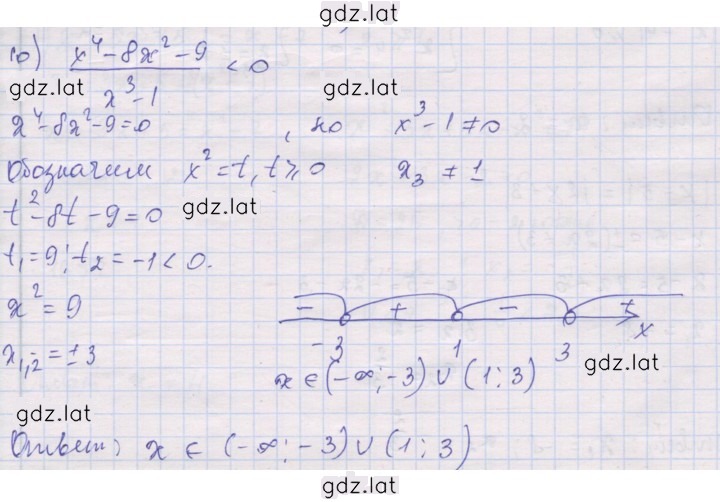 gdz.lat
ю) (x⁴-8x²-9)/(x³-1) < 0
gdz.lat gdz.lat
x⁴-8x²-9=0 , но x³-1≠0
Обозначим x²=t, t⩾0 x₃ ≠ 1
gdz.lat
t²-8t-9=0
t₁=9; t₂=-1<0.
x²=9
- + - + x
x₁,₂=±3
-3 1 3
gdz.lat
x∈(-∞;-3)∪(1;3)
gdz.lat
Ответ: x∈(-∞;-3)∪(1;3)
gdz.lat